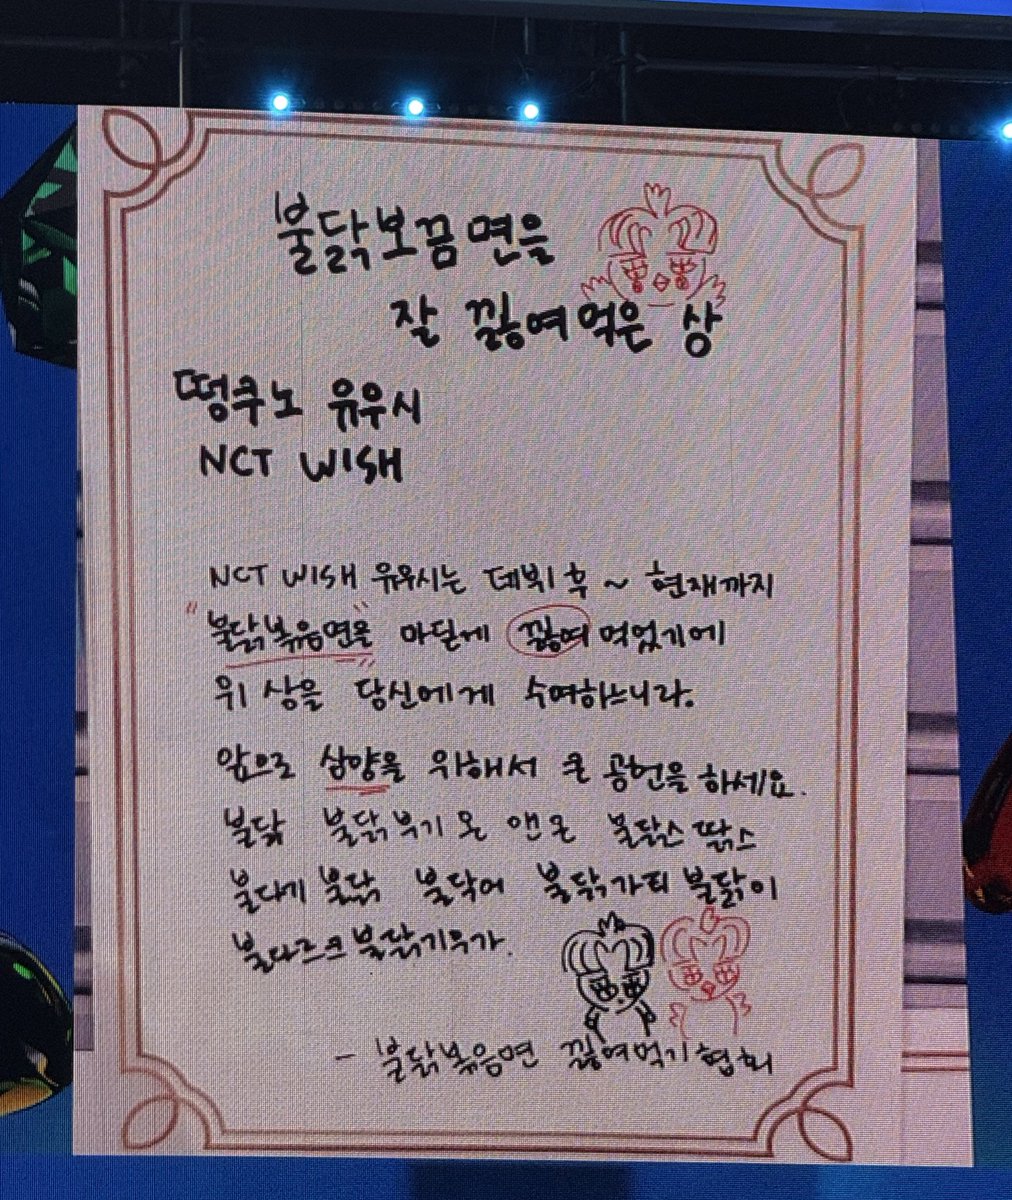 불닭보끔면을
잘 끓여먹은 상
떵쿠노 유우시
NCT WISH
NCT WISH 유우시는 데뷔 후 ~ 현재까지
"불닭볶음면을" 마딛게 끓여 먹었기에
위 상을 당신에게 수여하느니라.
앞으로 삼양을 위해서 큰 공헌을 하세요.
불닭 불닭부기 온 앤 온 불닭스 딹스
불다기 불닭 불닥어 불닭가티 불닭이
불다르크 불닭기우가.
- 불닭볶음면 끓여먹기협회